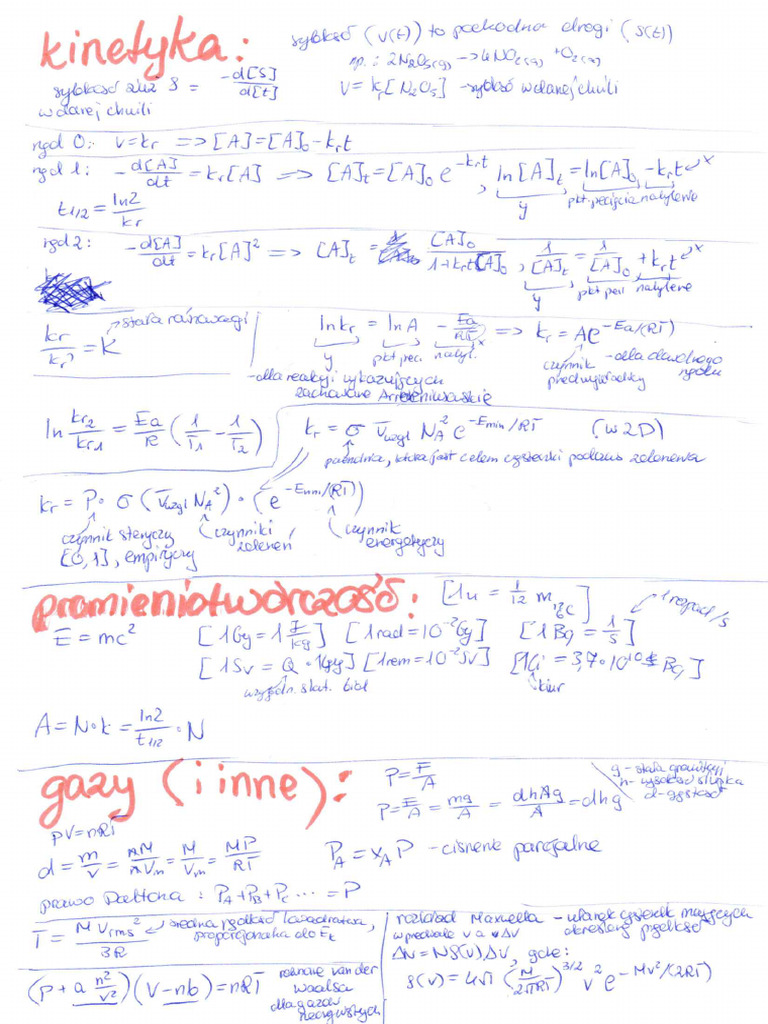 kinetyka:
szybkość (v(t)) to pochodna drogi (s(t))
np.: 2N₂O₅(g) → 4NO₂(g) + O₂(g)
szybkość zuż S = -d[S]/d[t]
w danej chwili
v = kᵣ[N₂O₅] - szybkość w danej chwili
rząd 0: v = kᵣ => [A] = [A]₀ - kᵣt
rząd 1: -d[A]/dt = kᵣ[A] => [A]t = [A]₀ e^(-kᵣt), ln[A]t = ln[A]₀ - kᵣt ← x
y pkt. przecięcia nachylenie
t₁/₂ = ln2/kᵣ
rząd 2: -d[A]/dt = kᵣ[A]² => [A]t = [A]₀/(1+kᵣt[A]₀), 1/[A]t = 1/[A]₀ + kᵣt ← x
y pkt przec nachylenie
kᵣ/kᵣ' = K stała równowagi
ln kᵣ = lnA - Ea/RT => kᵣ = Ae^(-Ea/(RT))
y pkt przec. nachyl.
czynnik przedwykładniczy
-dla reakcji wykazujących
zachowanie Arrheniusowskie
ln kᵣ₂/kᵣ₁ = Ea/R (1/T₁ - 1/T₂)
kᵣ = σ v̄wzgl NA² e^(-Emin/RT) (w 2D)
która jest celem cząsteczki podczas zderzenia
kᵣ = P · σ (v̄wzgl NA²) · (e^(-Emin/(RT)))
czynnik steryczny
[0,1], empiryczny
czynniki
zderzeń
czynnik
energetyczny
promieniotwórczość:
[1u = 1/12 m ¹²₆C]
E = mc²
[1Gy = 1 J/kg] [1rad = 10⁻² Gy] [1Bq = 1/s] 1 rozpad/s
[1Sv = Q · 1Gy] [1rem = 10⁻² Sv] [1Ci = 3,7 · 10¹⁰ Bq]
współ. skut. biol kiur
A = N·k = ln2/t₁/₂ · N
gazy (i inne):
P = F/A
g - stała grawitacji
h - wysokość słupka
d - gęstość
P = F/A = mg/A = dhAg/A = dhg
pV = nRT
d = m/V = nM/nVm = M/Vm = MP/RT
PA = xA P - ciśnienie parcjalne
prawo Daltona: PA + PB + PC .... = P
T = M vrms²/3R
średnia prędkość kwadratowa,
proporcjonalna do Ek
(p + a n²/V²)(V - nb) = nRT
równanie van der
Waalsa
dla gazów
rzeczywistych
rozkład Maxwella - ułamek cząsteczek mających
określoną prędkość
w przedziale v a Δv
ΔN = Nf(v)Δv, gdzie:
f(v) = 4π (M/2πRT)^(3/2) v² e^(-Mv²/(2RT))